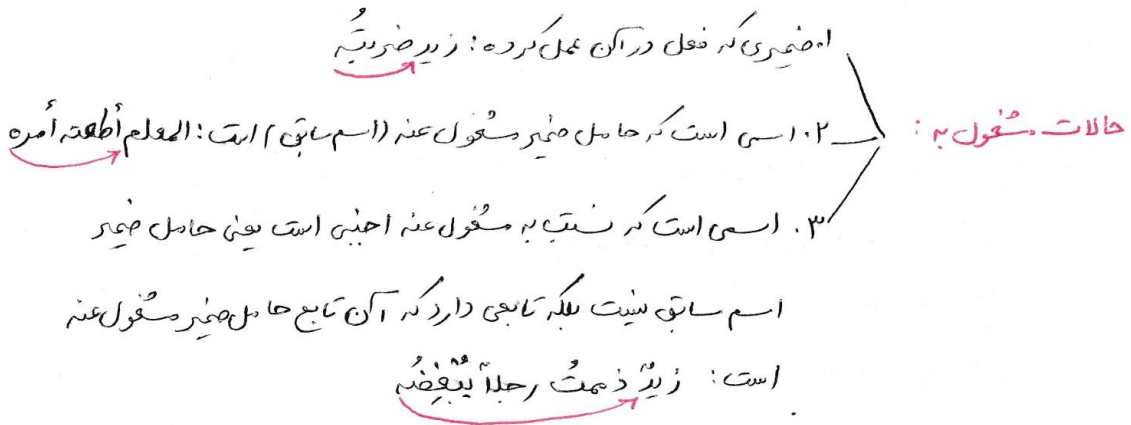 ۱. ضمیری که فعل در آن عمل کرده: زید ضربتُه
حالات مشغول به:
۲. اسمی است که حامل ضمیر مشغول عنه (اسم سابق) است: المعلم أطعته أمره
۳. اسمی است که نسبت به مشغول عنه اجنبی است یعنی حامل ضمیر
اسم سابق نیست بلکه تابعی دارد که آن تابع حامل ضمیر مشغول عنه
است: زیدٌ ذممتُ رجلاً یُبْغِضُه